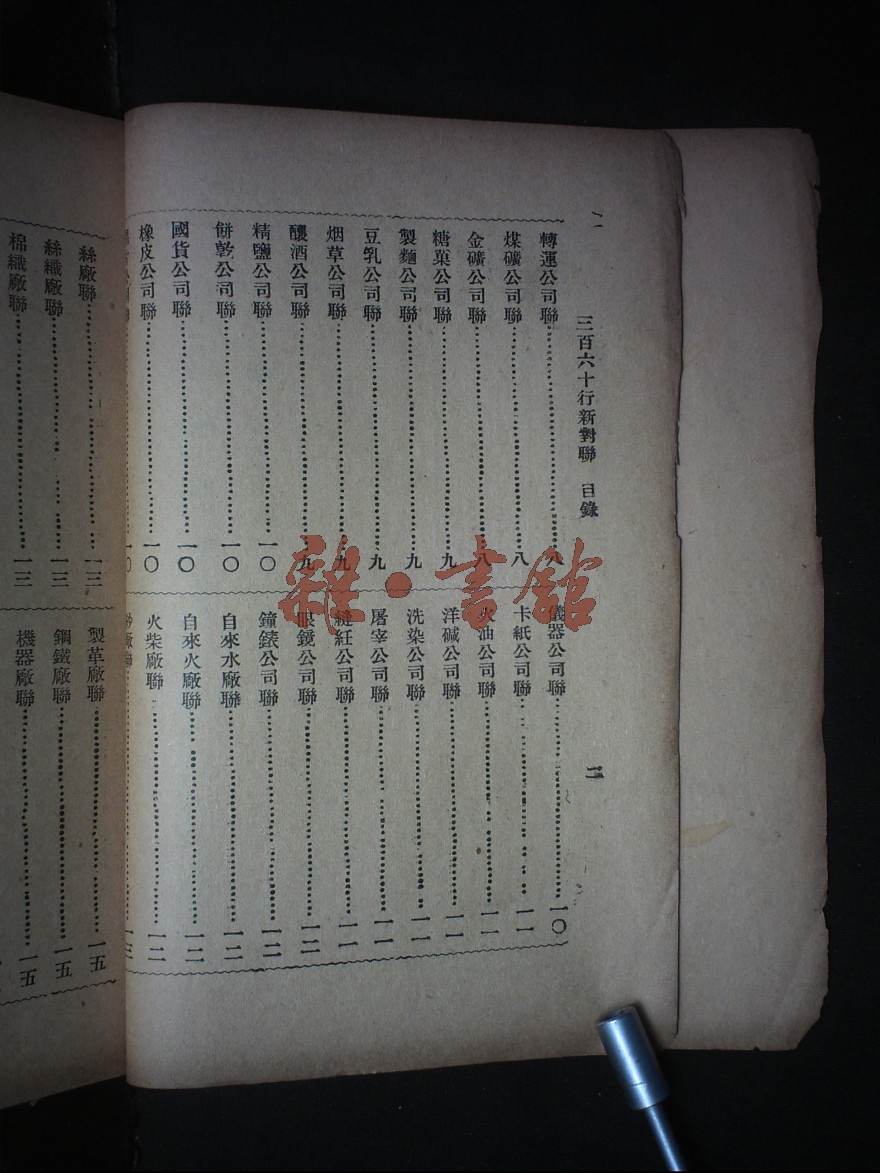 二
三百六十行新對聯 目錄
二
轉運公司聯 八
煤礦公司聯 八
金礦公司聯 八
糖菓公司聯 九
製麵公司聯 九
豆乳公司聯 九
烟草公司聯 九
釀酒公司聯 九
精鹽公司聯 一〇
餅乾公司聯 一〇
國貨公司聯 一〇
橡皮公司聯 一〇
儀器公司聯 一〇
卡紙公司聯 一一
火油公司聯 一一
洋碱公司聯 一一
洗染公司聯 一一
屠宰公司聯 一一
縫紝公司聯 一一
眼鏡公司聯 一二
鐘錶公司聯 一二
自來水廠聯 一二
自來火廠聯 一二
火柴廠聯 一二
紗廠聯 一三
絲廠聯 一三
絲織廠聯 一三
棉織廠聯 一三
製革廠聯 一五
鋼鐵廠聯 一五
機器廠聯 一五
雜·書館